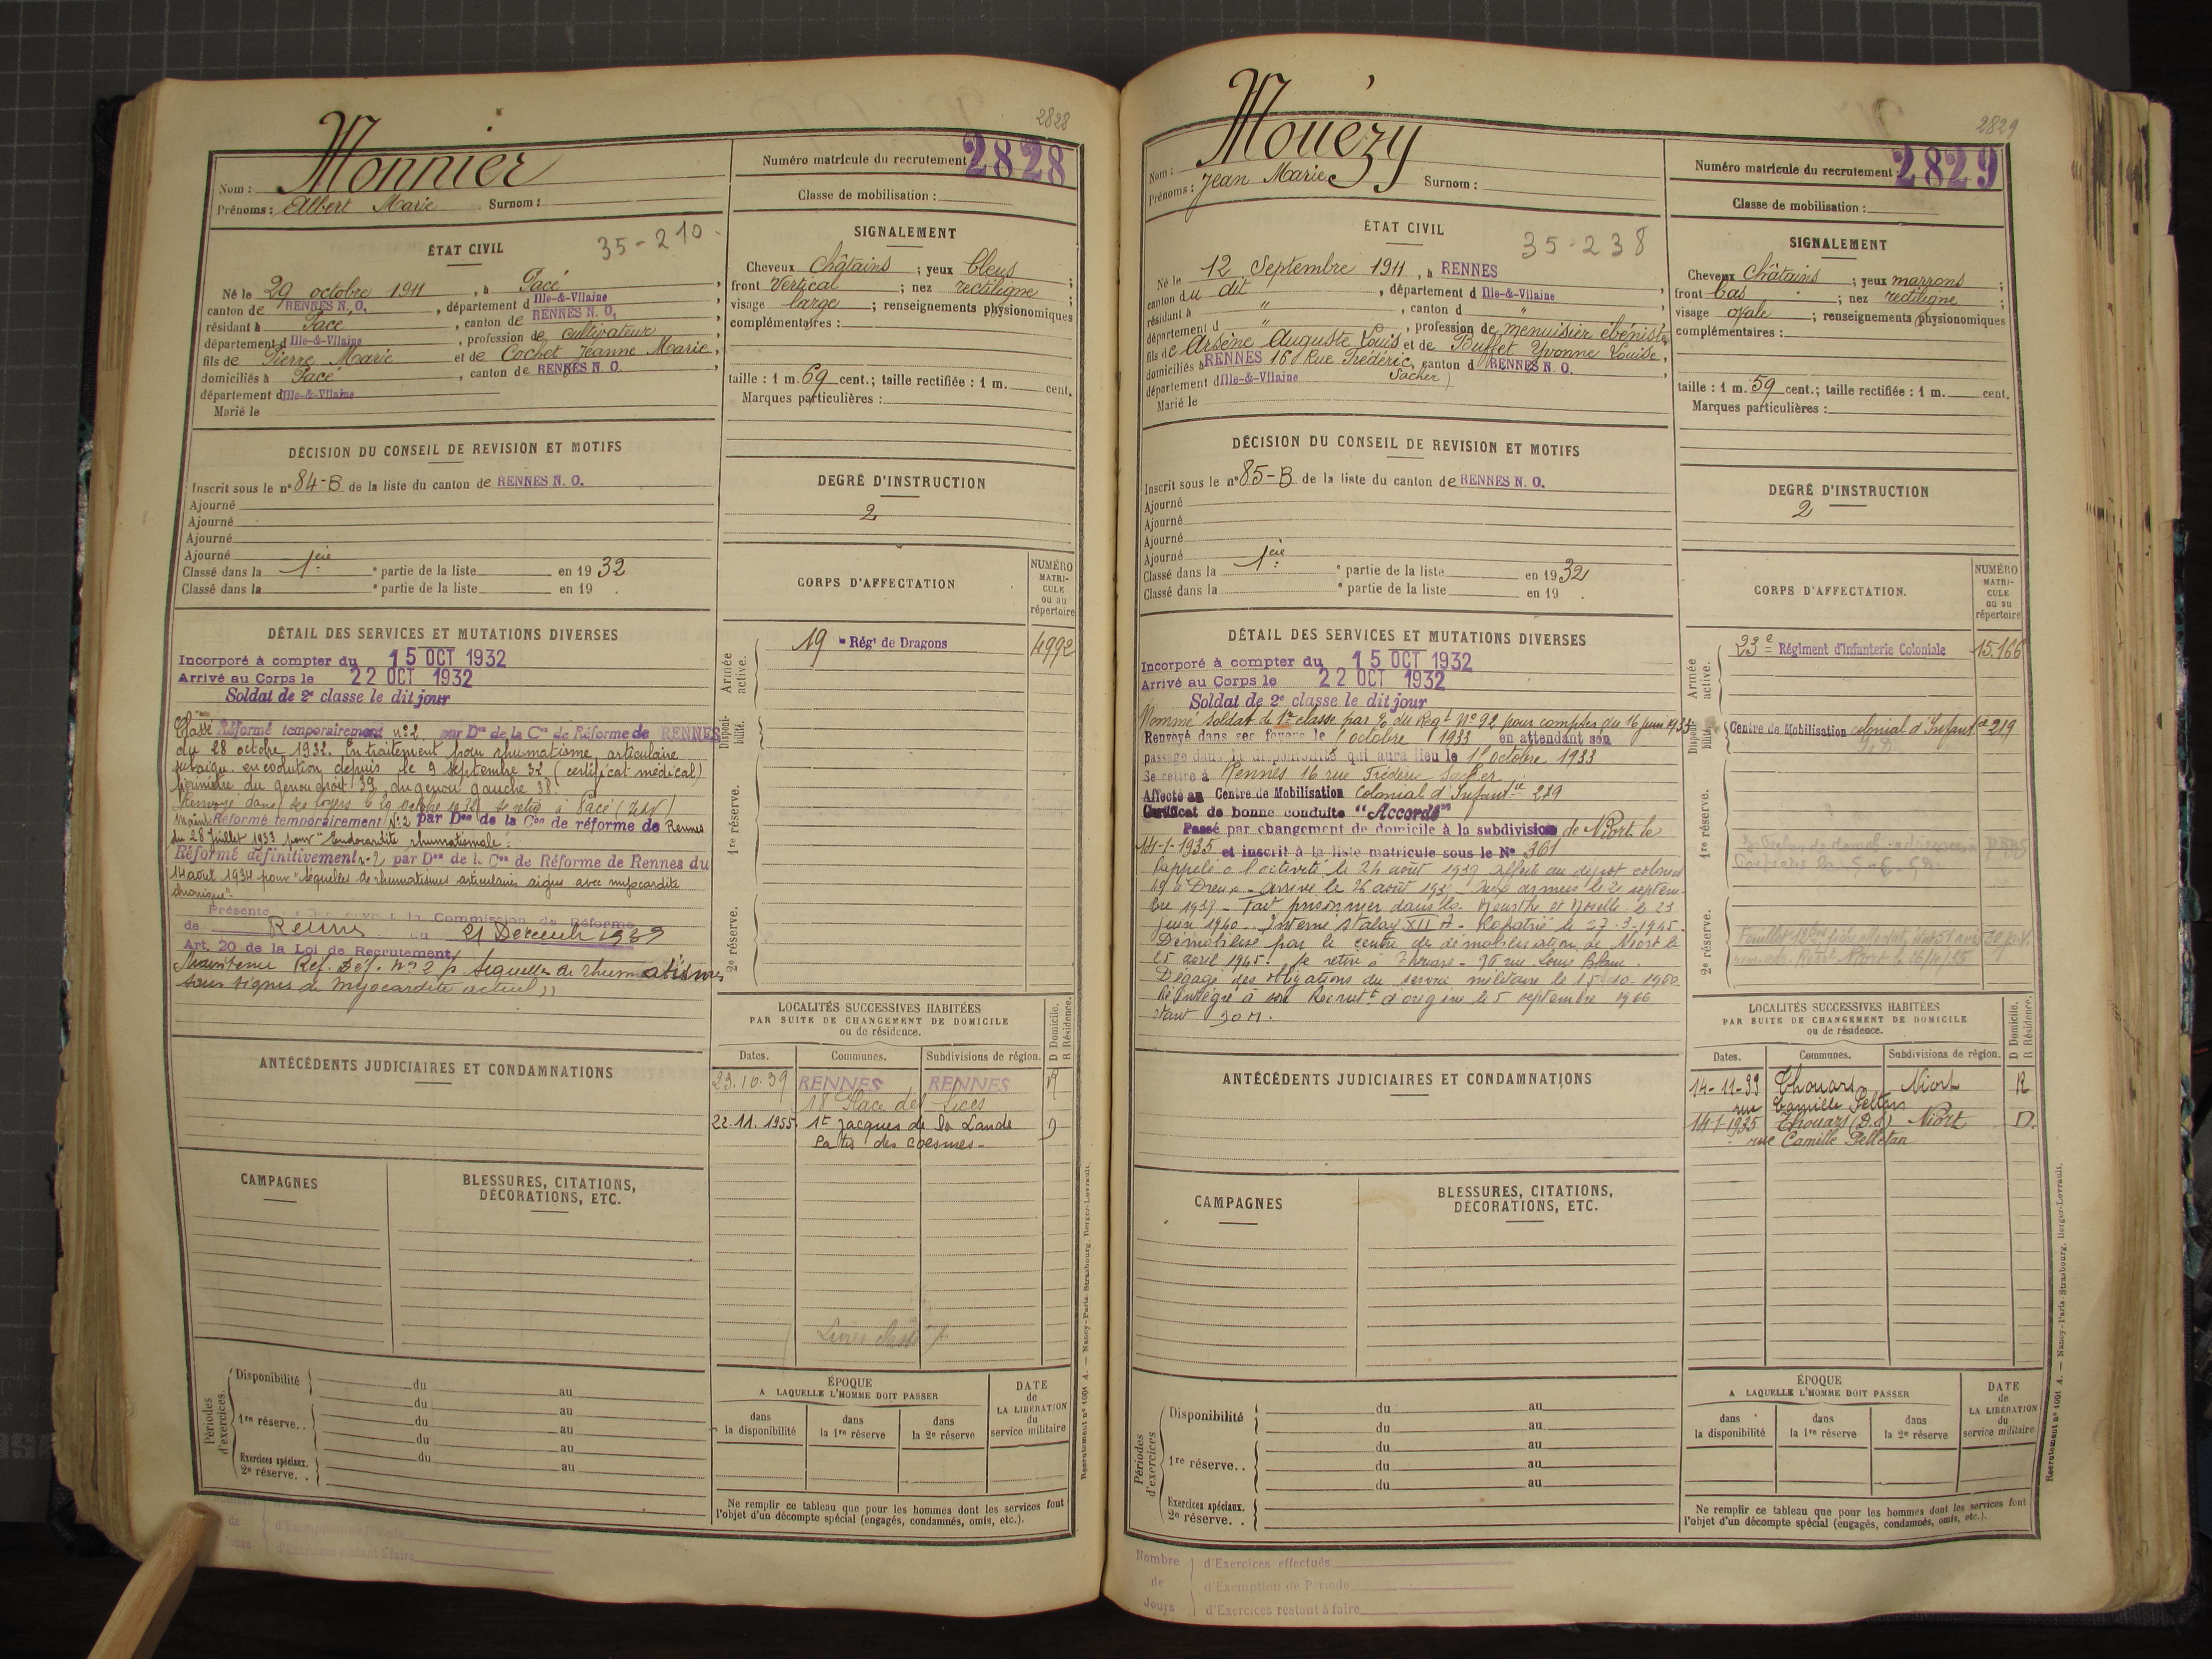 2828
Monnier
Nom :
Prénoms : Albert Marie Surnom :
Numéro matricule du recrutement 2828
Classe de mobilisation :
ÉTAT CIVIL
35-210
Né le 29 octobre 1911, à Pacé,
canton de RENNES N. O., département d Ille-&-Vilaine,
résidant à Pacé, canton de RENNES N. O.,
département d Ille-&-Vilaine, profession de cultivateur,
fils de Pierre Marie et de Cochet Jeanne Marie,
domiciliés à Pacé, canton de RENNES N. O.
département d Ille-&-Vilaine
Marié le
SIGNALEMENT
Cheveux châtains ; yeux bleus ;
front Vertical ; nez rectiligne ;
visage large ; renseignements physionomiques
complémentaires :
taille : 1 m. 69 cent. ; taille rectifiée : 1 m. cent.
Marques particulières :
DÉCISION DU CONSEIL DE REVISION ET MOTIFS
Inscrit sous le n° 84-B de la liste du canton de RENNES N. O.
Ajourné
Ajourné
Ajourné
Ajourné
Classé dans la 1ère partie de la liste en 19 32
Classé dans la e partie de la liste en 19 .
DEGRÉ D'INSTRUCTION
2
CORPS D'AFFECTATION
NUMÉRO
MATRI-
CULE
ou au
répertoire
Armée active.
19 e Régt de Dragons 4992
Disponi-
bilité.
1re réserve.
2e réserve.
DÉTAIL DES SERVICES ET MUTATIONS DIVERSES
Incorporé à compter du 15 OCT 1932
Arrivé au Corps le 22 OCT 1932
Soldat de 2e classe le dit jour
Classé Réformé temporairement n°2 par Don de la Con de Réforme de RENNES
du 28 octobre 1932. En traitement pour rhumatisme articulaire
subaigu en évolution depuis le 9 septembre 32 (certificat médical)
périmètre du genou droit 39, du genou gauche 38.
Renvoyé dans ses foyers le 29 octobre 1932 se retire à Pacé (I&V)
Maint. Réformé temporairement N°2 par Don de la Con de réforme de Rennes
du 28 Juillet 1933 pour "Endocardite rhumatismale".
Réformé définitivement n°2 par Don de la Con de Réforme de Rennes du
14 août 1934 pour "Séquelles de rhumatismes articulaires aigus avec myocardite
chronique".
Présenté devant la Commission de Réforme
de Rennes du 21 Décembre 1939
Art. 20 de la Loi de Recrutement
Maintenu Réf. Déf. n° 2 p. Séquelles de rhumatismes
sans signes de myocardite actuel "
LOCALITÉS SUCCESSIVES HABITÉES
PAR SUITE DE CHANGEMENT DE DOMICILE
ou de résidence.
D Domicile.
R Résidence.
Dates. Communes. Subdivisions de région.
23.10.39 RENNES RENNES R
18 Place des Lices
22.11.1955 St Jacques de la Lande D
La tis des Coesmes
ANTÉCÉDENTS JUDICIAIRES ET CONDAMNATIONS
CAMPAGNES
BLESSURES, CITATIONS,
DÉCORATIONS, ETC.
Périodes
d'exercices.
Disponibilité du au
du au
1re réserve. . du au
du au
Exercices spéciaux.
2e réserve. . du au
ÉPOQUE
A LAQUELLE L'HOMME DOIT PASSER
dans
la disponibilité
dans
la 1re réserve
dans
la 2e réserve
DATE
de
LA LIBÉRATION
du
service militaire
Ne remplir ce tableau que pour les hommes dont les services font
l'objet d'un décompte spécial (engagés, condamnés, omis, etc.).
Recrutement n° 1001 A. — Nancy-Paris-Strasbourg, Berger-Levrault.
de d'Exemption de Période
Jours d'Exercices restant à faire
2829
Mouézy
Nom :
Prénoms : Jean Marie Surnom :
Numéro matricule du recrutement : 2829
Classe de mobilisation :
ÉTAT CIVIL
35-238
Né le 12 Septembre 1911, à RENNES
canton du dit, département d Ille-&-Vilaine,
résidant à ", canton d ,
département d ", profession de menuisier ébéniste,
fils de Arsène Auguste Louis et de Buffet Yvonne Louise,
domiciliés à RENNES 16 Rue Frédéric Sacher), canton d RENNES N. O.,
département d Ille-&-Vilaine
Marié le
SIGNALEMENT
Cheveux châtains ; yeux marrons ;
front bas ; nez rectiligne ;
visage ovale ; renseignements physionomiques
complémentaires :
taille : 1 m. 59 cent. ; taille rectifiée : 1 m. cent.
Marques particulières :
DÉCISION DU CONSEIL DE REVISION ET MOTIFS
Inscrit sous le n° 85-B de la liste du canton de RENNES N. O.
Ajourné
Ajourné
Ajourné
Ajourné
Classé dans la 1ère partie de la liste en 19 32
Classé dans la e partie de la liste en 19 .
DEGRÉ D'INSTRUCTION
2
CORPS D'AFFECTATION.
NUMÉRO
MATRI-
CULE
ou au
répertoire
Armée active.
23e Régiment d'Infanterie Coloniale 15.166
Disponi-
bilité.
Centre de Mobilisation colonial d'Infantie 219
1re réserve.
2e réserve.
DÉTAIL DES SERVICES ET MUTATIONS DIVERSES
Incorporé à compter du 15 OCT 1932
Arrivé au Corps le 22 OCT 1932
Soldat de 2e classe le dit jour
Nommé soldat de 1re classe par % du Régt N° 92 pour compter du 16 juin 1933
Renvoyé dans ses foyers le 1 octobre 1933 en attendant son
passage dans la disponibilité qui aura lieu le 15 octobre 1933
Se retire à Rennes 16 rue Frédéric Sacher
Affecté au Centre de Mobilisation Colonial d'Infantie 219
Certificat de bonne conduite "Accordé"
Passé par changement de domicile à la subdivision de Niort le
14-1-1935 et inscrit à la liste matricule sous le N° 361
Rappelé à l'activité le 24 août 1939 affecté au dépôt colonial
19 à Dreux - arrivé le 26 août 1939. aux armées le 2 septem-
bre 1939 - Fait prisonnier dans la Meurthe et Moselle le 23
juin 1940 - Interné stalag XII A - Rapatrié le 27-3-1945.
Démobilisé par le centre de démobilisation de Niort le
25 avril 1945 - se retire à Thouars - rue Louis Blanc.
Dégagé des obligations du service militaire le 15-10-1960
Réintégré à son Recrutt d'origine le 5 septembre 1966
LOCALITÉS SUCCESSIVES HABITÉES
PAR SUITE DE CHANGEMENT DE DOMICILE
ou de résidence.
D Domicile.
R Résidence.
Dates. Communes. Subdivisions de région.
14-11-33 Thouars Niort R
rue Camille Pelletan
14-1-1935 Thouars (D.S) Niort D.
rue Camille Pelletan
ANTÉCÉDENTS JUDICIAIRES ET CONDAMNATIONS
CAMPAGNES
BLESSURES, CITATIONS,
DÉCORATIONS, ETC.
Périodes
d'exercices
Disponibilité du au
du au
1re réserve. . du au
du au
du au
Exercices spéciaux.
2e réserve. .
ÉPOQUE
A LAQUELLE L'HOMME DOIT PASSER
dans
la disponibilité
dans
la 1re réserve
dans
la 2e réserve
DATE
de
LA LIBÉRATION
du
service militaire
Ne remplir ce tableau que pour les hommes dont les services font
l'objet d'un décompte spécial (engagés, condamnés, omis, etc.).
Recrutement n° 1001 A. — Nancy-Paris-Strasbourg, Berger-Levrault.
Nombre d'Exercices effectués
de d'Exemption de Période
Jours d'Exercices restant à faire